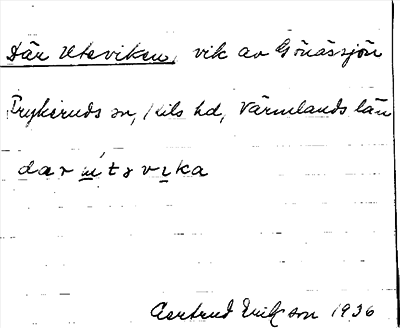 Där Uteviken, vik av Gönässjön
Frykeruds sn, Kils hd, Värmlands län
dar ut vika
Gertrud Ericson 1936